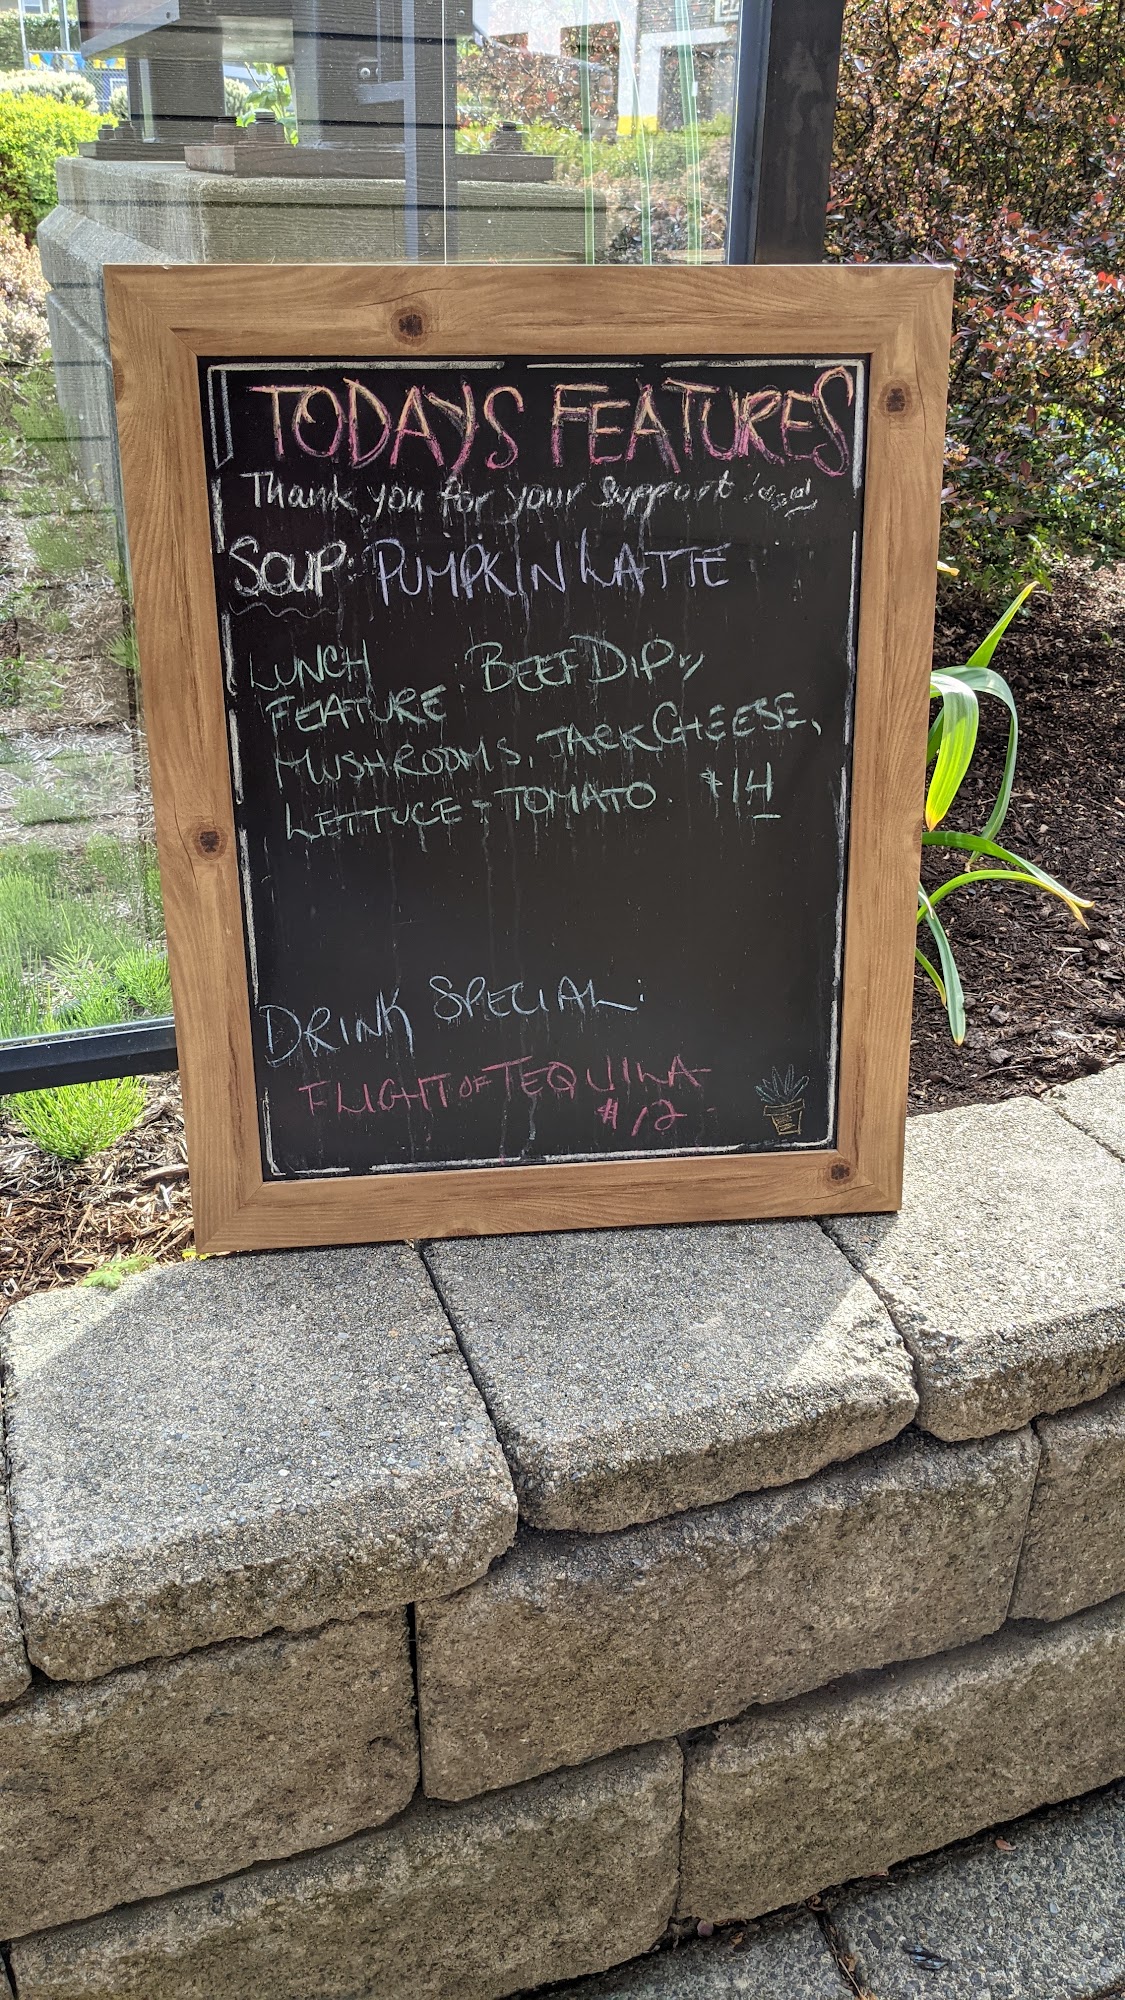 TODAYS FEATURES
Thank you for your support!
SOUP: PUMPKIN LATTE
LUNCH
FEATURE : BEEF DIP w/
MUSHROOMS, JACK CHEESE,
LETTUCE + TOMATO. $14
DRINK SPECIAL:
FLIGHT OF TEQUILA
$12